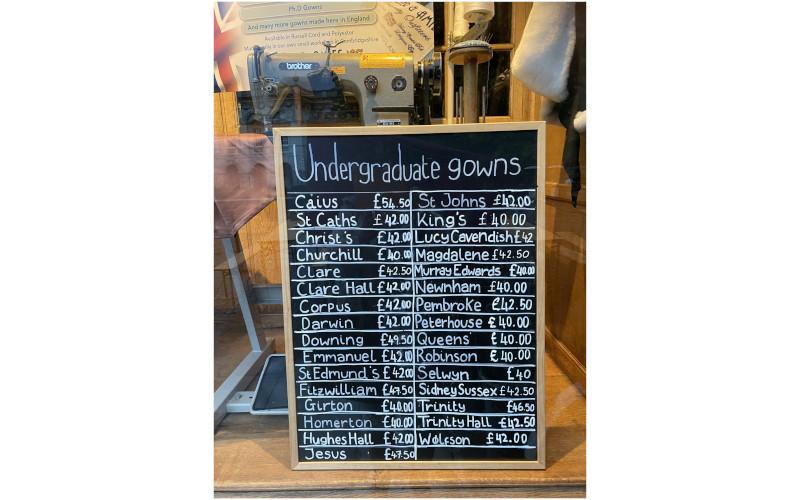 Ph.D Gowns
And many more gowns made here in England
Available in Russell Cord and Polyester
in our own small workshop in Cambridgeshire
brother
Undergraduate gowns
Caius £54.50
St Caths £42.00
Christ's £42.00
Churchill £40.00
Clare £42.50
Clare Hall £42.00
Corpus £42.00
Darwin £42.00
Downing £49.50
Emmanuel £42.00
St Edmund's £42.00
Fitzwilliam £47.50
Girton £40.00
Homerton £40.00
Hughes Hall £42.00
Jesus £47.50
St Johns £42.00
King's £40.00
Lucy Cavendish £42
Magdalene £42.50
Murray Edwards £40.00
Newnham £40.00
Pembroke £42.50
Peterhouse £40.00
Queens' £40.00
Robinson £40.00
Selwyn £40
Sidney Sussex £42.50
Trinity £46.50
Trinity Hall £42.50
Wolfson £42.00